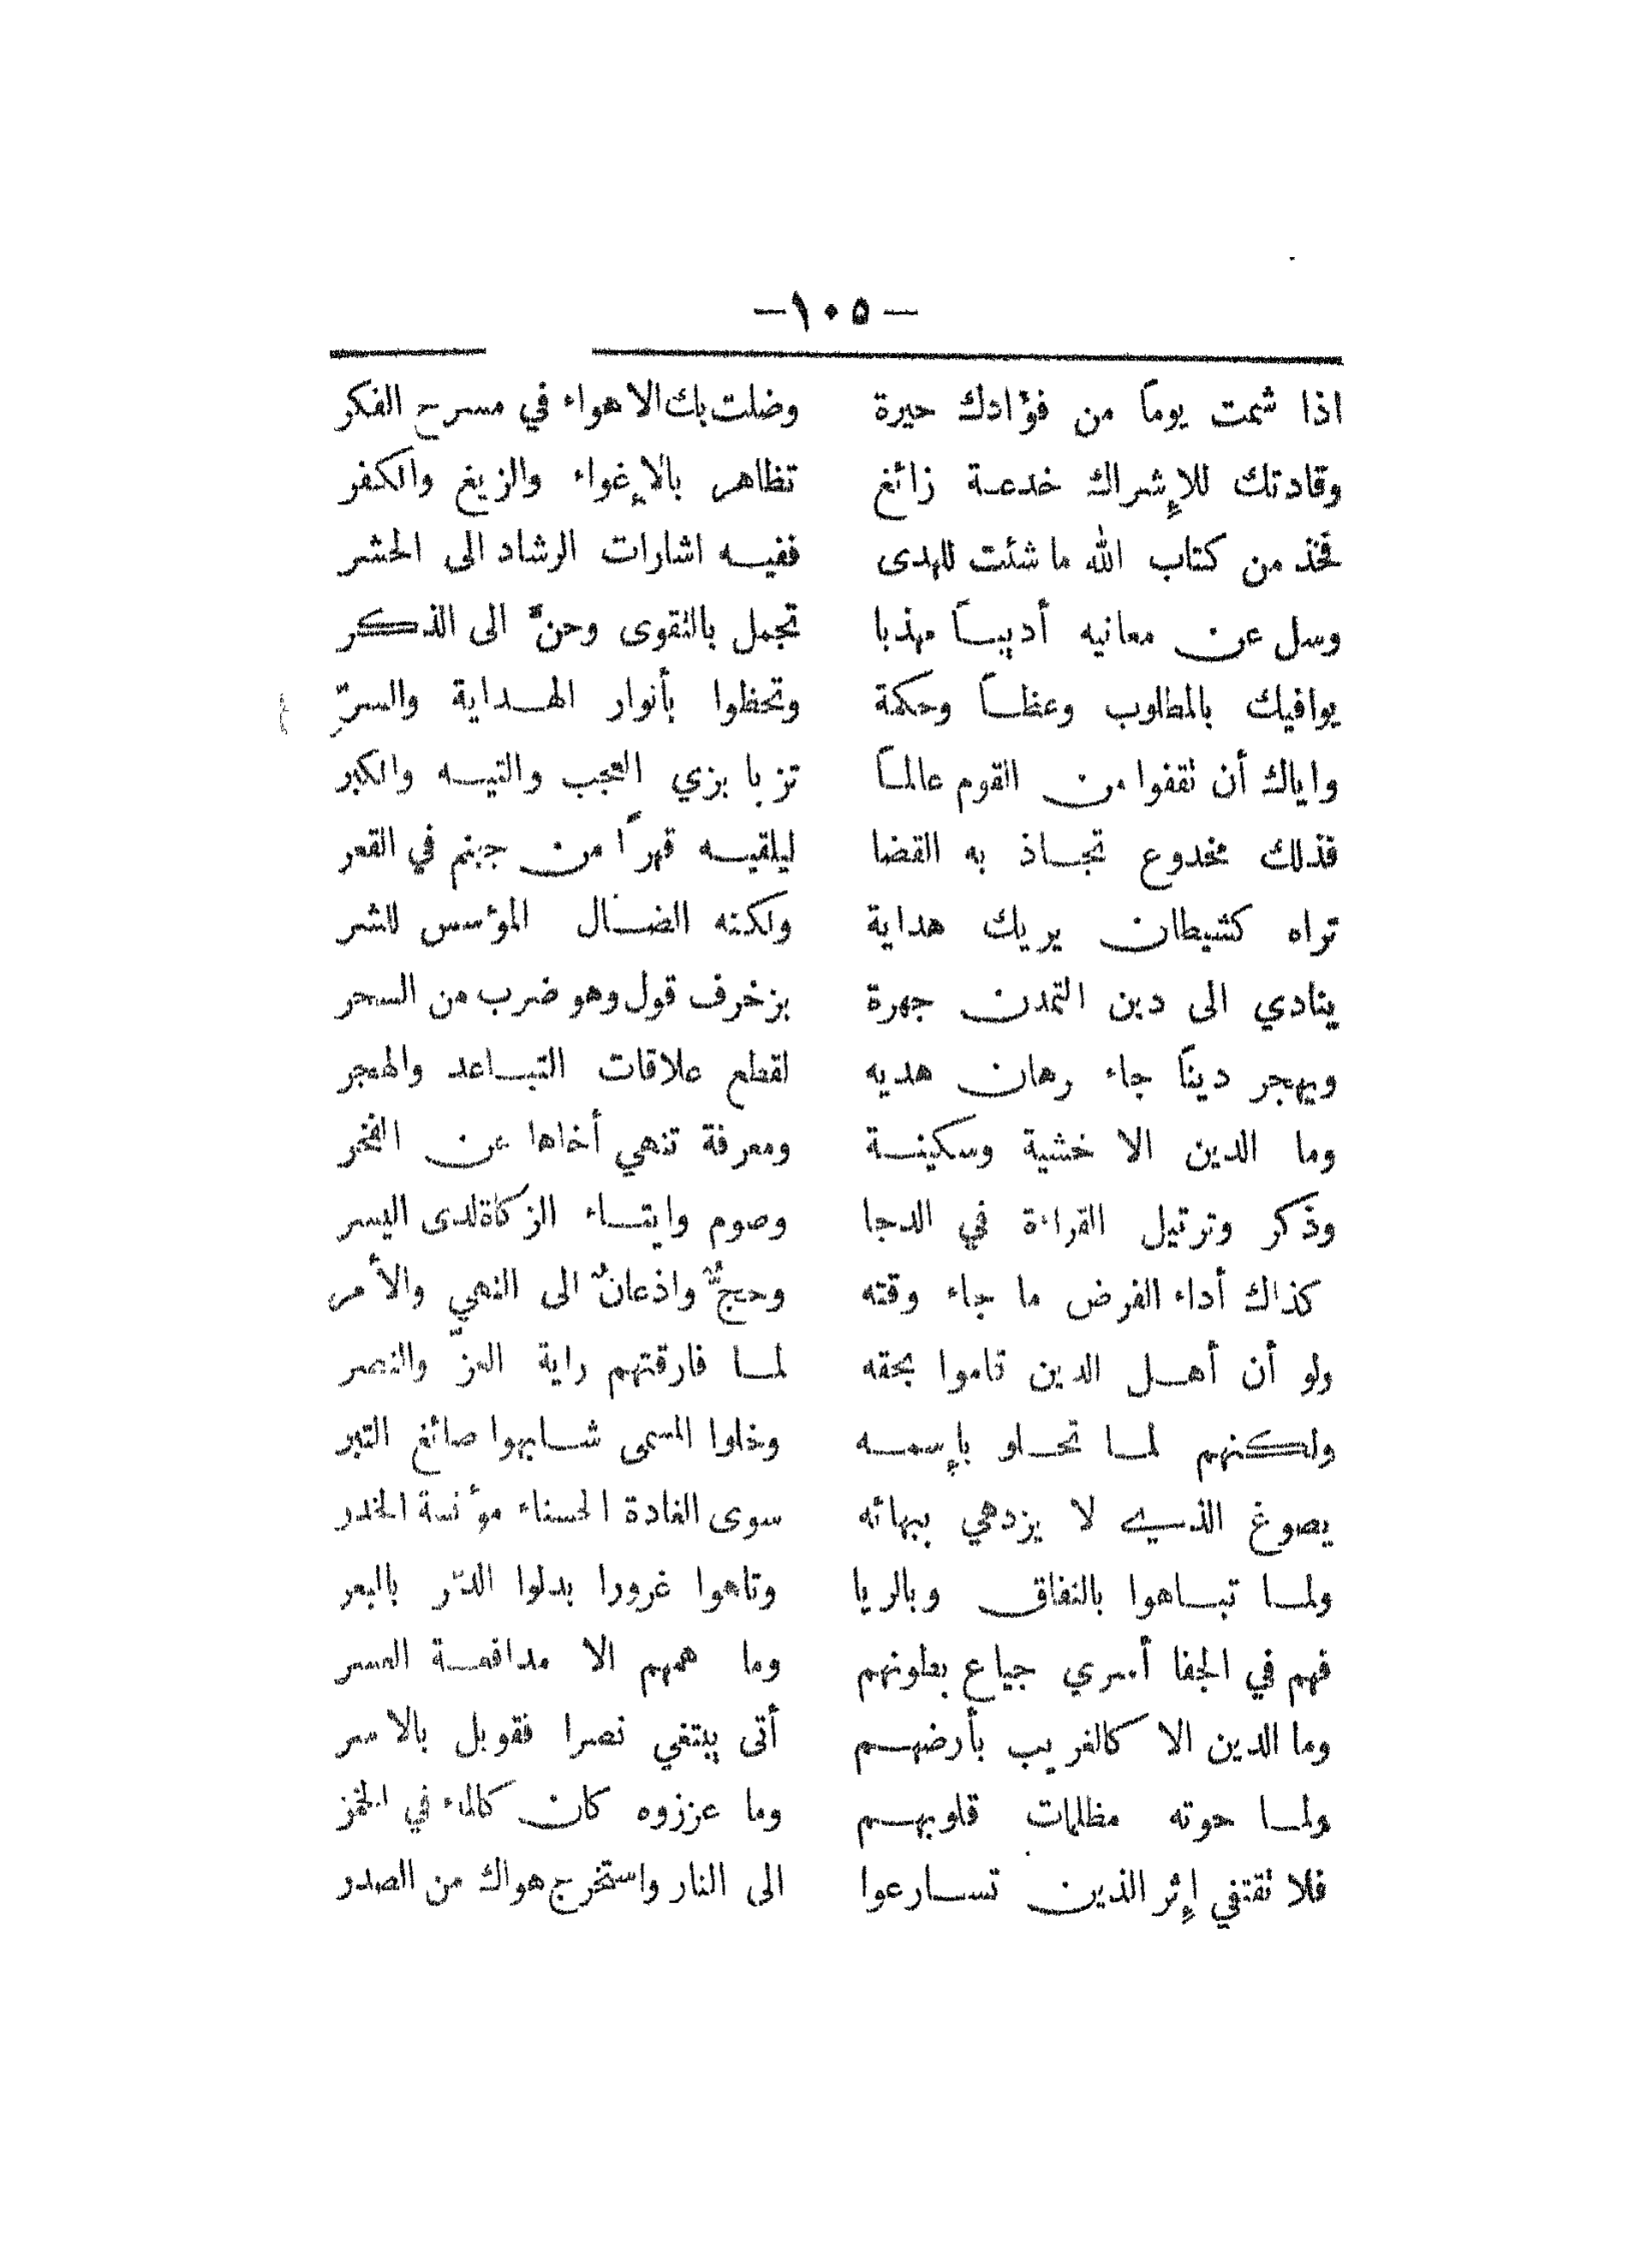 —١٠٥—
اذا شمت يوماً من فؤادك حيرة وضلت بك الاهواء في مسرح الفكر
وقادتك للإشراك خدعة زائغ تظاهر بالإغواء والزيغ والكفر
فخذ من كتاب الله ما شئت للهدى ففيه اشارات الرشاد الى الحشر
وسل عن معانيه أديباً مهذبا تجمل بالتقوى وحنَّ الى الذكر
يوافيك بالمطلوب وعظاً وحكمة وتحظوا بأنوار الهداية والسرِّ
واياك أن تقفوا من القوم عالماً تزيا بزي العجب والتيه والكبر
فذلك مخدوع تجاذ به القضا ليلقيه قهراً من جهنم في القعر
تراه كشيطان يريك هداية ولكنه الضال المؤسس للشر
ينادي الى دين التمدن جهرة بزخرف قول وهو ضرب من السحر
ويهجر ديناً جاء رهان هديه لقطع علاقات التباعد والهجر
وما الدين الا خشية وسكينة ومعرفة تنهي أخاها عن الفخر
وذكر وترتيل القراءة في الدجا وصوم وايتاء الزكاة لدى اليسر
كذاك أداء الفرض ما جاء وقته وحجٌّ واذعانٌ الى النهي والأمر
ولو أن أهل الدين قاموا بحقه لما فارقتهم راية العزّ والنصر
ولكنهم لما تحلو بإسمه وخلوا المسمى شابهوا صائغ التبر
يصوغ الذي لا يزدهي ببهائه سوى الغادة الحسناء مؤنسة الخدر
ولما تباهوا بالنفاق وبالريا وتاهوا غرورا بدلوا الدّر بالبعر
فهم في الجفا أسرى جياع بطونهم وما همهم الا مدافعة العسر
وما الدين الا كالغريب بأرضهم أتى يبتغي نصرا فقوبل بالاسر
ولما حوته مظلمات قلوبهم وما عززوه كان كالماء في الخمر
فلا تقتفي إثر الذين تسارعوا الى النار واستخرج هواك من الصدر